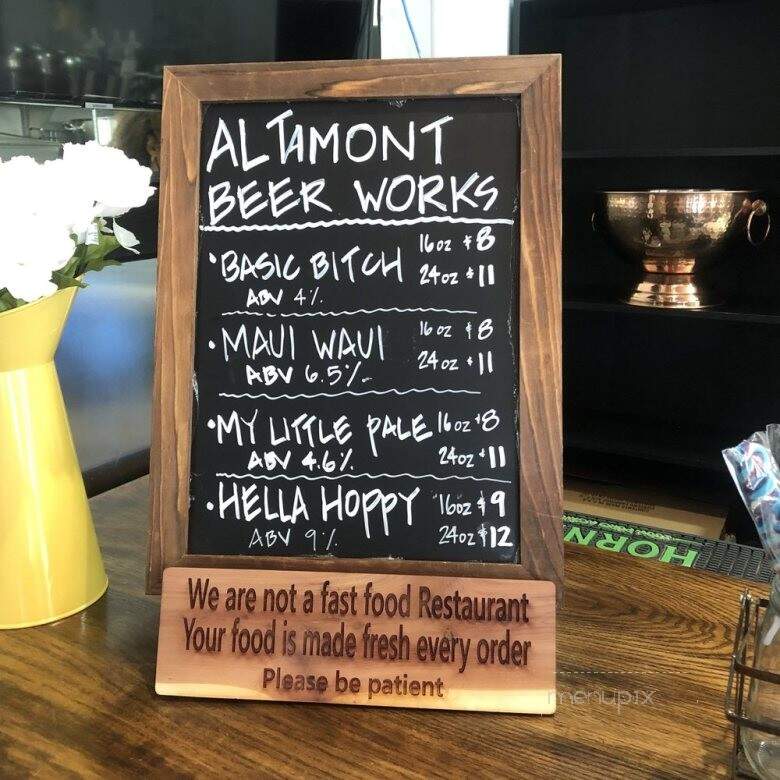 ALTAMONT
BEER WORKS
• BASIC BITCH 16oz $8
24oz $11
ABV 4%
• MAUI WAUI 16oz $8
24oz $11
ABV 6.5%
• MY LITTLE PALE 16oz $8
ABV 4.6% 24oz $11
• HELLA HOPPY 16oz $9
ABV 9% 24oz $12
We are not a fast food Restaurant
Your food is made fresh every order
Please be patient
HORN
menupix